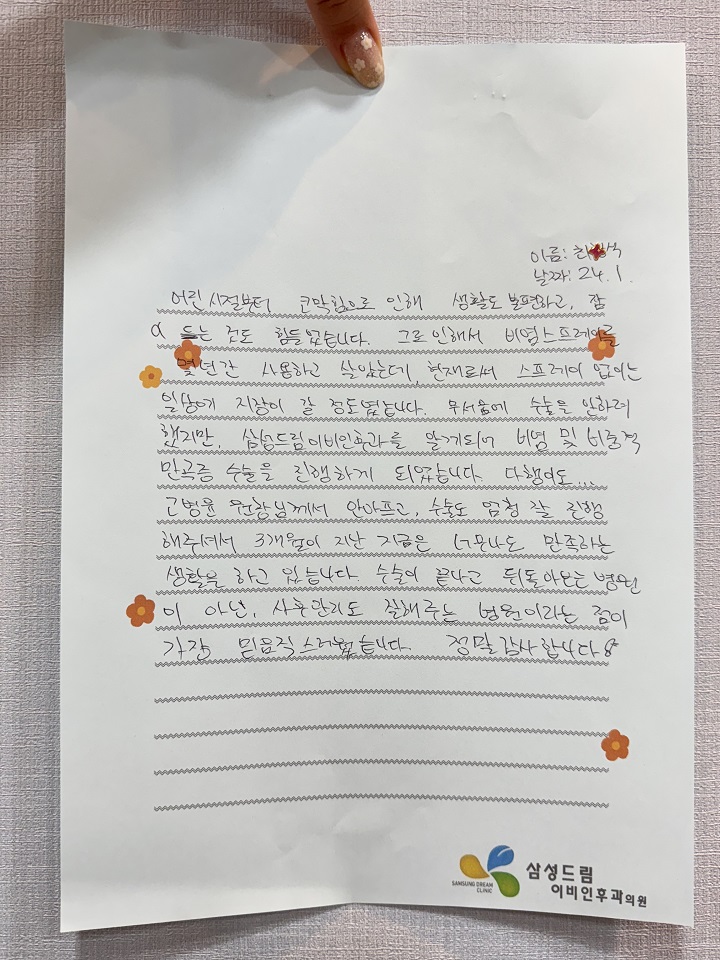 이름: 최 석
날짜: 24.1.
어린시절부터 코막힘으로 인해 생활도 불편하고, 잠
드는 것도 힘들었습니다. 그로인해서 비염스프레이를
몇년간 사용하고 살았는데, 현재로써 스프레이 없이는
일상에 지장이 갈 정도였습니다. 무서움에 수술을 안하려
했지만, 삼성드림이비인후과를 알게되어 비염 및 비중격
만곡증 수술을 진행하게 되었습니다. 다행이도...
고병윤 원장님께서 안아프고, 수술도 엄청 잘 진행
해주셔서 3개월이 지난 지금은 너무나도 만족하는
생활을 하고 있습니다. 수술이 끝나고 뒤돌아오는 병원
이 아닌, 사후관리도 잘해주는 병원이라는 점이
가장 믿음직스러웠습니다. 정말감사합니다
SAMSUNG DREAM
CLINIC
삼성드림
이비인후과의원